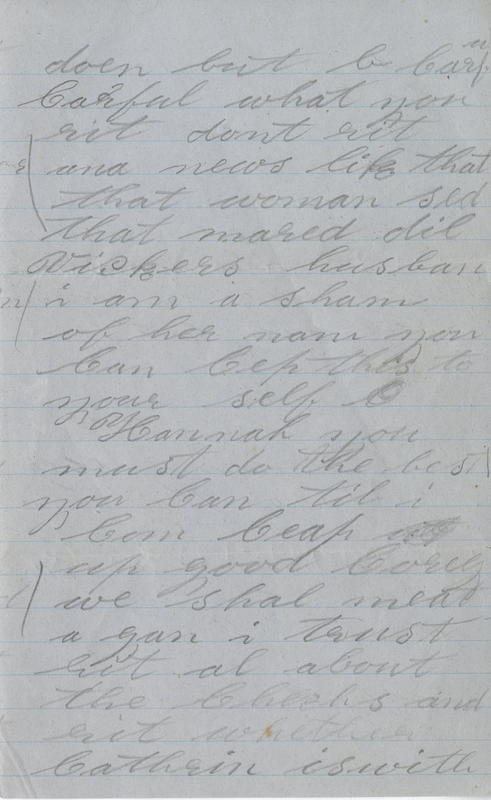 doen but be Carf
Carful what you
rit dont rit
and news like that
that woman sed
that mared dil
Vickers husban
i am a sham
of her nam you
Can Cep this to
your self
Hannah you
must do the best
you Can til i
Com Ceap
up good Coreg
we shal meat
a gan i trust
rit al about
the Checks and
rit whether
Cathrin is with